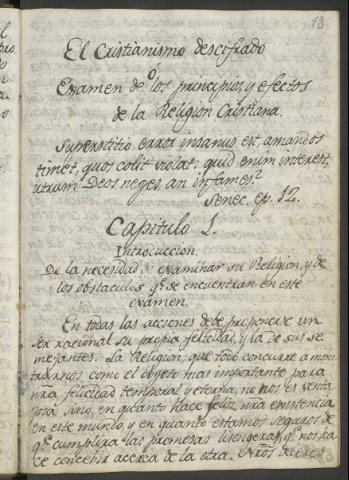 13
El Cristianismo descifrado
ó
Examen de los principios, y efectos
de la Religion Cristiana.
Superstitio error insanus est, amandos
timet, quos colit violat: quid enim interest,
utrum Deos neges an infames?
Senec. ep. 12.
Capitulo 1.
Introduccion.
De la necesidad de examinar su Religion, y de
los obstaculos qe. se encuentran en este
examen.
En todas las acciones debe proponerse un
Ser racional su propia felicidad, y la de sus se
mejantes. La Religion, que todo concurre a mos
trarnos como el objeto mas importante para
nra felicidad temporal y eterna, no nos es venta
josa sino, en quanto hace feliz nra existencia
en este mundo, y en quanto estamos seguros de
qe. cumplira las promesas lisongeras, qe. nos ha
ce concebir acerca de la otra. Nros deberes